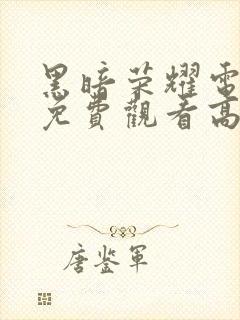 黑暗荣耀電
免費觀看高
唐鉴軍